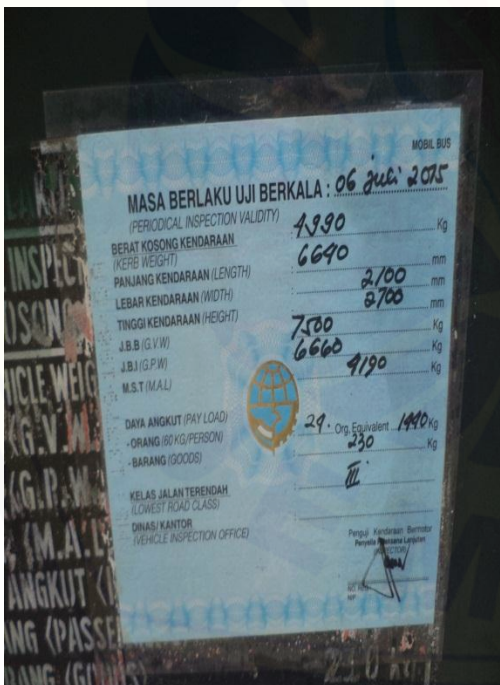 MOBIL BUS
MASA BERLAKU UJI BERKALA : 06 Juli 2015
(PERIODICAL INSPECTION VALIDITY)
BERAT KOSONG KENDARAAN 4990 Kg
(KERB WEIGHT)
PANJANG KENDARAAN (LENGTH) 6640 mm
LEBAR KENDARAAN (WIDTH) 2100 mm
TINGGI KENDARAAN (HEIGHT) 2700 mm
J.B.B (G.V.W) 7500 Kg
J.B.I (G.P.W) 6660 Kg
M.S.T (M.A.L) 4190 Kg
DAYA ANGKUT (PAY LOAD)
- ORANG (60 KG/PERSON) 24. Org. Equivalent 1440 Kg
- BARANG (GOODS) 230 Kg
KELAS JALAN TERENDAH III.
(LOWEST ROAD CLASS)
DINAS/KANTOR
(VEHICLE INSPECTION OFFICE)
Penguji Kendaraan Bermotor
Penyelia Pelaksana Lanjutan
INSPECT
OSONG
ICLE WEIG
(G.V.W
(G.P.W
(M.A.L
ANGKUT
NG (PASSE
RANG (GOODS)